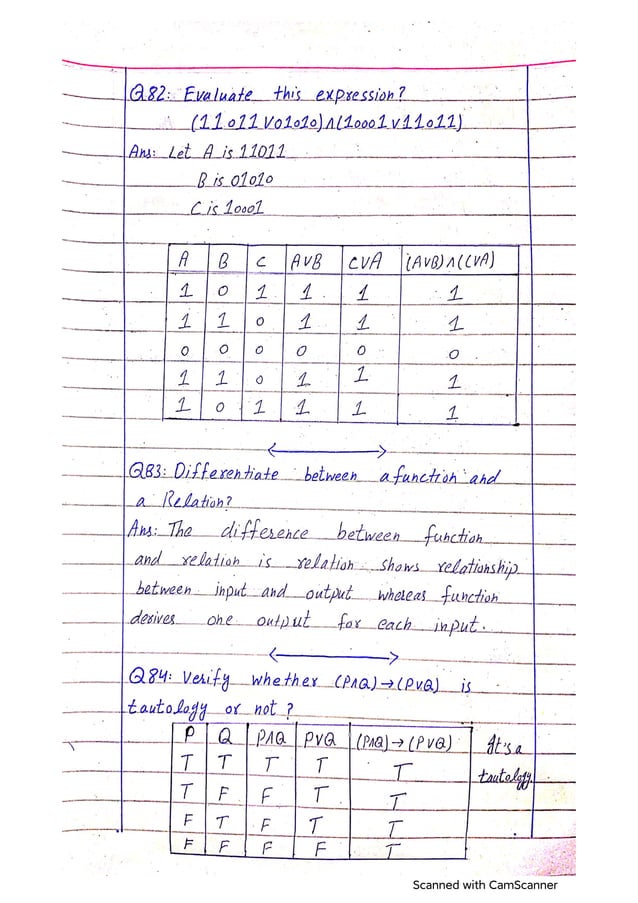 Q82: Evaluate this expression?
(11011 V 01010) ∧ (10001 V 11011)
Ans: Let A is 11011
B is 01010
C is 10001
A B C AVB CVA (AVB)∧(CVA)
1 0 1 1 1 1
1 1 0 1 1 1
0 0 0 0 0 0
1 1 0 1 1 1
1 0 1 1 1 1
Q83: Differentiate between a function and
a Relation?
Ans: The difference between function
and relation is relation shows relationship
between input and output whereas function
derives one output for each input.
Q84: Verify whether (P∧Q)→(PVQ) is
tautology or not?
P Q P∧Q PVQ (P∧Q)→(PVQ) It's a
T T T T T tautology.
T F F T T
F T F T T
F F F F T
Scanned with CamScanner